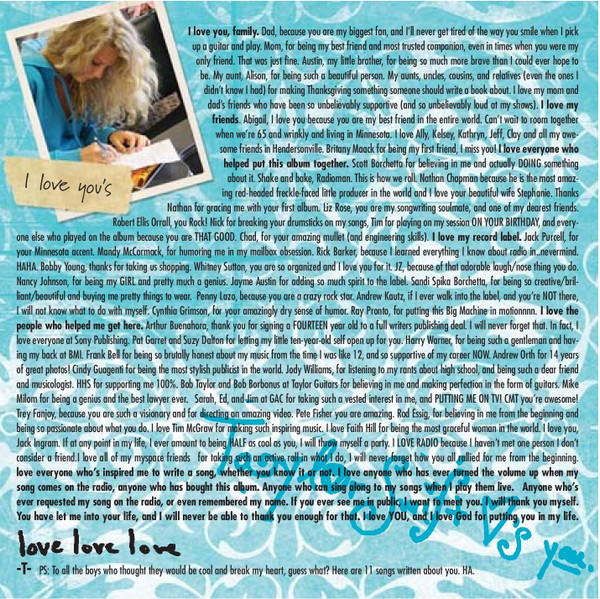 I love you, family. Dad, because you are my biggest fan, and I'll never get tired of the way you smile when I pick
up a guitar and play. Mom, for being my best friend and most trusted companion, even in times when you were my
only friend. That was just fine. Austin, my little brother, for being so much more brave than I could ever hope to
be. My aunt, Alison, for being such a beautiful person. My aunts, uncles, cousins, and relatives (even the ones I
didn't know I had) for making Thanksgiving something someone should write a book about. I love my mom and
dad's friends who have been so unbelievably supportive (and so unbelievably loud at my shows). I love my
friends. Abigail, I love you because you are my best friend in the entire world. Can't wait to room together
when we're 65 and wrinkly and living in Minnesota. I love Ally, Kelsey, Kathryn, Jeff, Clay and all my awe-
some friends in Hendersonville. Britany Maack for being my first friend, I miss you! I love everyone who
helped put this album together. Scott Borchetta for believing in me and actually DOING something
about it. Shake and bake, Radioman. This is how we roll. Nathan Chapman because he is the most amaz-
ing red-headed freckle-faced little producer in the world and I love your beautiful wife Stephanie. Thanks
Nathan for gracing me with your first album. Liz Rose, you are my songwriting soulmate, and one of my dearest friends.
Robert Ellis Orrall, you Rock! Nick for breaking your drumsticks on my songs, Tim for playing on my session ON YOUR BIRTHDAY, and every-
one else who played on the album because you are THAT GOOD. Chad, for your amazing mullet (and engineering skills). I love my record label. Jack Purcell, for
your Minnesota accent. Mandy McCormack, for humoring me in my mailbox obsession. Rick Barker, because I learned everything I know about radio in..nevermind.
HAHA. Bobby Young, thanks for taking us shopping. Whitney Sutton, you are so organized and I love you for it. JZ, because of that adorable laugh/nose thing you do.
Nancy Johnson, for being my GIRL and pretty much a genius. Jayme Austin for adding so much spirit to the label. Sandi Spika Borchetta, for being so creative/bril-
liant/beautiful and buying me pretty things to wear. Penny Lazo, because you are a crazy rock star. Andrew Kautz, if I ever walk into the label, and you're NOT there,
I will not know what to do with myself. Cynthia Grimson, for your amazingly dry sense of humor. Ray Pronto, for putting this Big Machine in motionnnn. I love the
people who helped me get here. Arthur Buenahora, thank you for signing a FOURTEEN year old to a full writers publishing deal. I will never forget that. In fact, I
love everyone at Sony Publishing. Pat Garret and Suzy Dalton for letting my little ten-year-old self open up for you. Harry Warner, for being such a gentleman and hav-
ing my back at BMI. Frank Bell for being so brutally honest about my music from the time I was like 12, and so supportive of my career NOW. Andrew Orth for 14 years
of great photos! Cindy Guagenti for being the most stylish publicist in the world. Jody Williams, for listening to my rants about high school, and being such a dear friend
and musicologist. HHS for supporting me 100%. Bob Taylor and Bob Borbonus at Taylor Guitars for believing in me and making perfection in the form of guitars. Mike
Milom for being a genius and the best lawyer ever. Sarah, Ed, and Jim at GAC for taking such a vested interest in me, and PUTTING ME ON TV! CMT you're awesome!
Trey Fanjoy, because you are such a visionary and for directing an amazing video. Pete Fisher you are amazing. Rod Essig, for believing in me from the beginning and
being so passionate about what you do. I love Tim McGraw for making such inspiring music. I love Faith Hill for being the most graceful woman in the world. I love you,
Jack Ingram. If at any point in my life, I ever amount to being HALF as cool as you, I will throw myself a party. I LOVE RADIO because I haven't met one person I don't
consider a friend. I love all of my myspace friends for taking such an active roll in what I do, I will never forget how you all rallied for me from the beginning. I
love everyone who's inspired me to write a song, whether you know it or not. I love anyone who has ever turned the volume up when my
song comes on the radio, anyone who has bought this album. Anyone who can sing along to my songs when I play them live. Anyone who's
ever requested my song on the radio, or even remembered my name. If you ever see me in public, I want to meet you. I will thank you myself.
You have let me into your life, and I will never be able to thank you enough for that. I love YOU, and I love God for putting you in my life.
I love you's
love love love
-T- PS: To all the boys who thought they would be cool and break my heart, guess what? Here are 11 songs written about you. HA.
you.